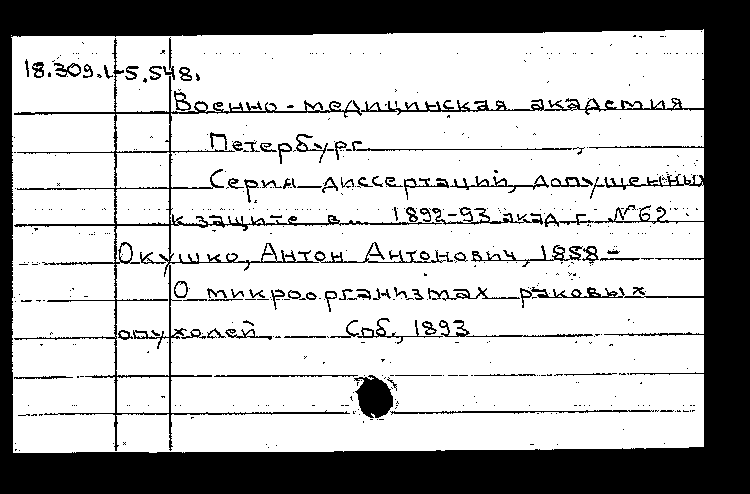 18.309.1-5.548.
Военно-медицинская академия
Петербург.
Серия диссертаций, допущенных
к защите в... 1892-93 акад. г. №62
Окушко, Антон Антонович, 1858-
О микроорганизмах раковых
опухолей. Спб., 1893